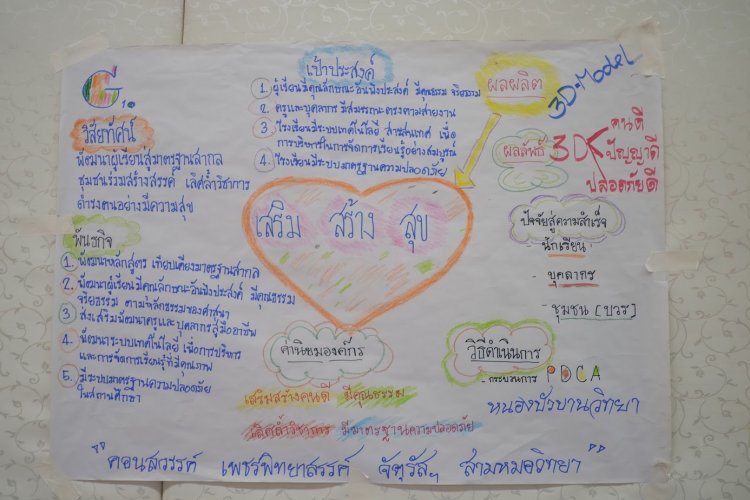 G 10
วิสัยทัศน์
พัฒนาผู้เรียนสู่มาตรฐานสากล
ชุมชนร่วมสร้างสรรค์ เลิศล้ำวิชาการ
ดำรงตนอย่างมีความสุข
พันธกิจ
1. พัฒนาหลักสูตร เทียบเคียงมาตรฐานสากล
2. พัฒนาผู้เรียนมีคุณลักษณะอันพึงประสงค์ มีคุณธรรม
จริยธรรม ตามหลักธรรมของศาสนา
3. ส่งเสริมพัฒนาครูและบุคลากรสู่มืออาชีพ
4. พัฒนาระบบเทคโนโลยี เพื่อการบริหาร
และการจัดการเรียนรู้ที่มีคุณภาพ
5. มีระบบมาตรฐานความปลอดภัย
ในสถานศึกษา
เป้าประสงค์
1. ผู้เรียนมีคุณลักษณะอันพึงประสงค์ มีคุณธรรม จริยธรรม
2. ครูและบุคลากร มีสมรรถนะตรงตามสายงาน
3. โรงเรียนมีระบบเทคโนโลยี สารสนเทศ เพื่อ
การบริหารในการจัดการเรียนรู้อย่างสมบูรณ์
4. โรงเรียนมีระบบมาตรฐานความปลอดภัย
เสริม สร้าง สุข
ค่านิยมองค์กร
เสริมสร้างคนดี มีคุณธรรม
เลิศล้ำวิชาการ มีมาตรฐานความปลอดภัย
ผลผลิต
3D-Model
ผลลัพธ์ 3D
คนดี
ปัญญาดี
ปลอดภัยดี
ปัจจัยสู่ความสำเร็จ
นักเรียน
- บุคลากร
- ชุมชน [บวร]
วิธีดำเนินการ
- กระบวนการ PDCA
หนองบัวบานวิทยา
"คอนสวรรค์ เพชรพิทยาสรรค์ จัตุรัสฯ สามหมอวิทยา"